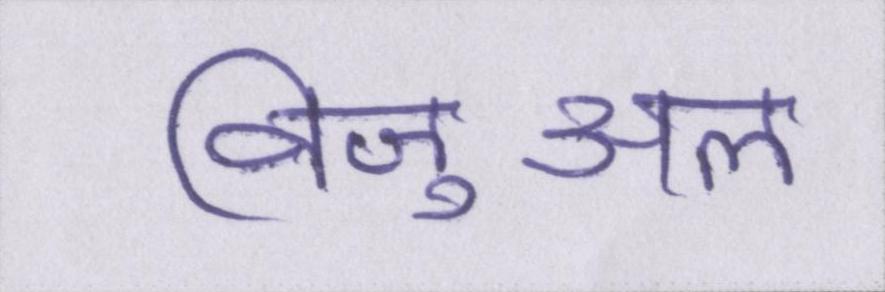 विजुअल